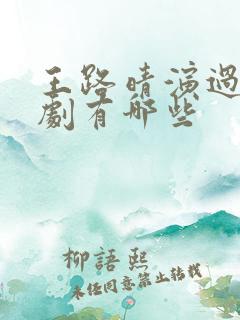 王路晴演過
劇有哪些
柳語熙
未經同意禁止轉載